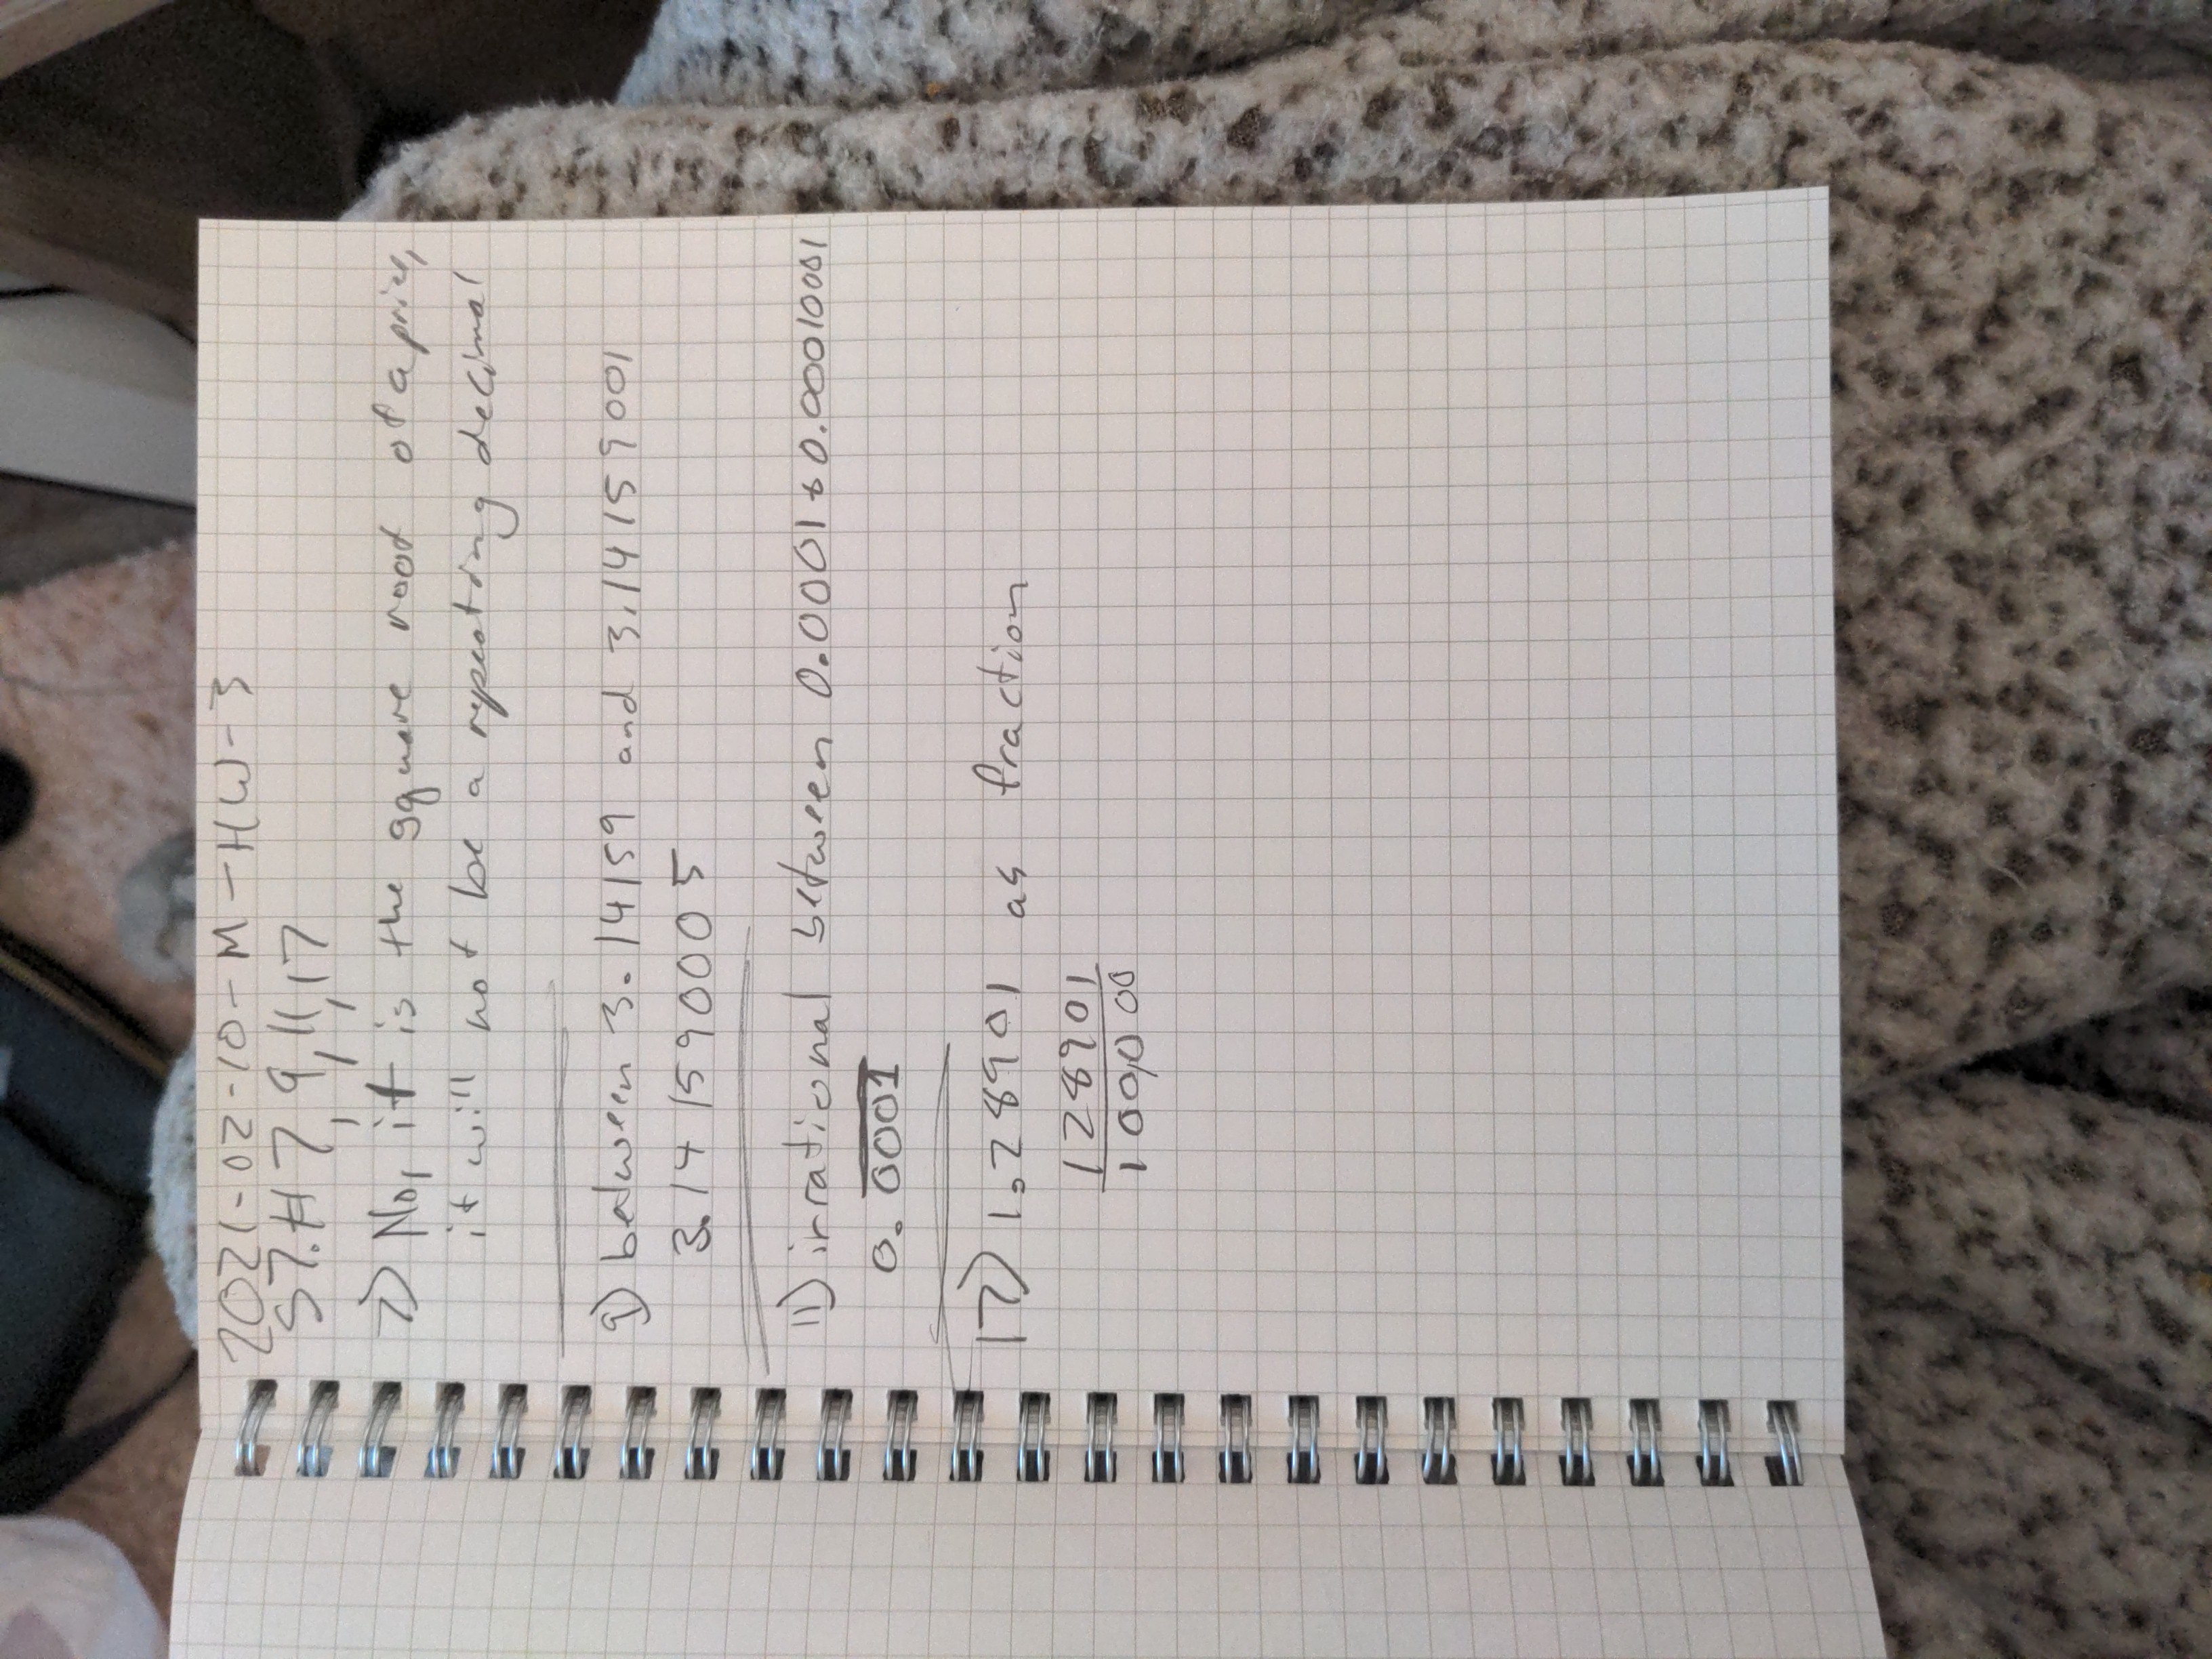 2021-02-10-M-HW-3
S7.# 7, 9, 11, 17
7) No, it is the square root of a price,
it will not be a repeating decimal
9) between 3.14159 and 3.14159001
3.141590005
11) irrational between 0.0001 & 0.00010001
0.0001
17) 1.28901 as fraction
128901
100,000